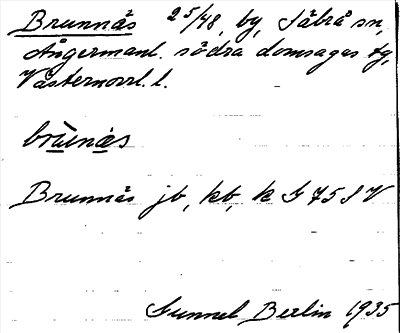 Brunnäs 25/48, by, Säbrå sn,
Ångermanl. södra domsagas tg,
Västernorrl. l.
brùnäs
Brunnäs jb, kb, k G 75 SV
Gunnel Berlin 1935